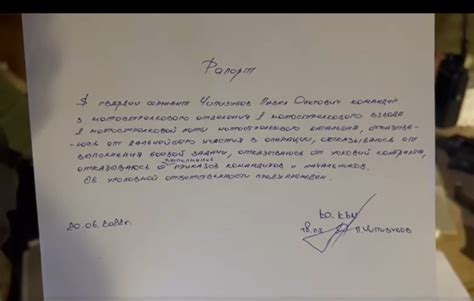 Рапорт
Я гвардии сержант Чипизубов Павел Олегович командир
3 мотострелкового отделения 1 мотострелкового взвода
1 мотострелковой роты мотострелкового батальона, отказыва-
юсь от дальнейшего участия в операции, отказываюсь от
выполнения боевой задачи, отказываюсь от условий контракта,
выполнения
отказываюсь от приказов командиров и начальников.
Об уголовной ответственности предупрежден.
20.06.2022г.
П Чипизубов